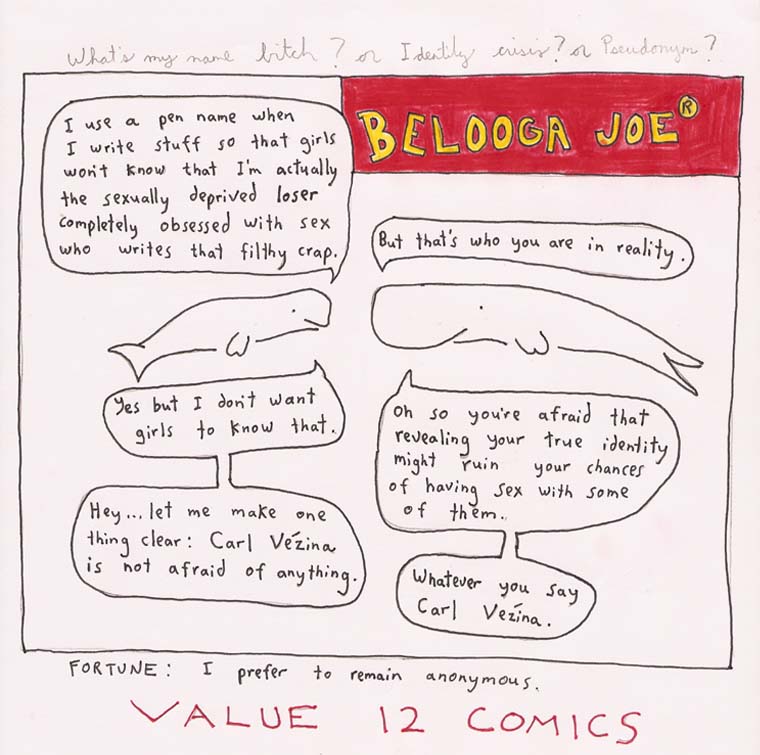 What's my name bitch? or Identity crisis? or Pseudonym?
BELOOGA JOE®
I use a pen name when
I write stuff so that girls
won't know that I'm actually
the sexually deprived loser
completely obsessed with sex
who writes that filthy crap.
But that's who you are in reality.
Yes but I don't want
girls to know that.
Oh so you're afraid that
revealing your true identity
might ruin your chances
of having sex with some
of them.
Hey... let me make one
thing clear: Carl Vézina
is not afraid of anything.
Whatever you say
Carl Vézina.
FORTUNE: I prefer to remain anonymous.
VALUE 12 COMICS